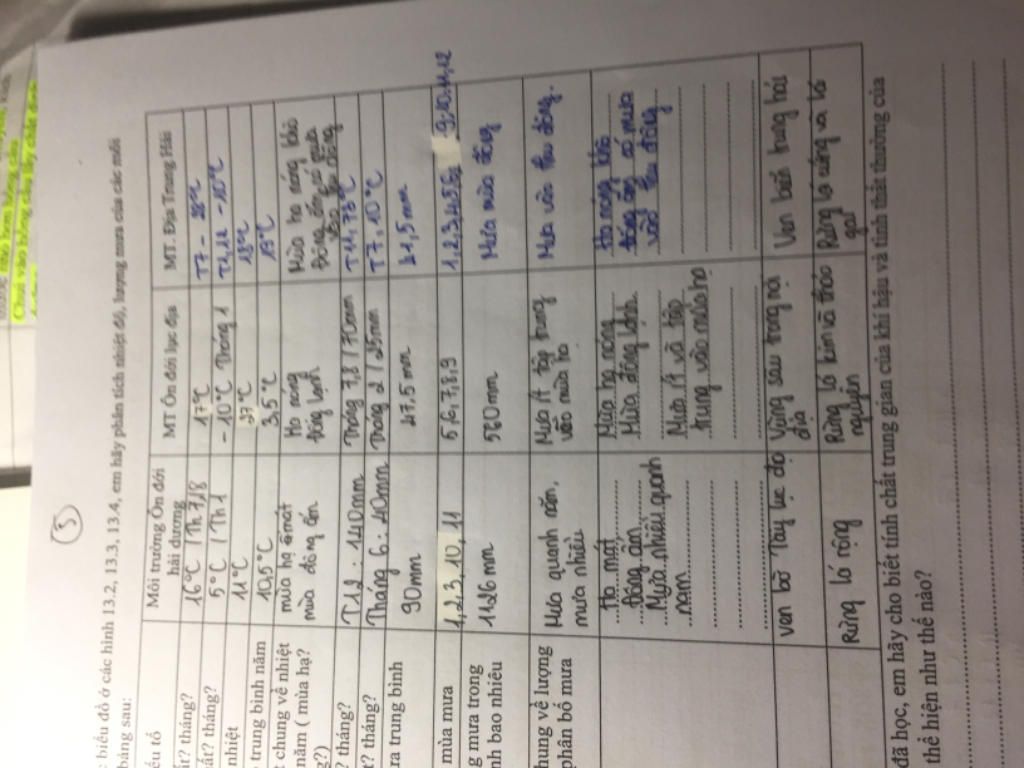 Chui vào hồng cầu
③
c biểu đồ ở các hình 13.2, 13.3, 13.4, em hãy phân tích nhiệt độ, lượng mưa của các môi
bảng sau:
ếu tố
Môi trường Ôn đới hải dương
MT Ôn đới lục địa
MT. Địa Trung Hải
ất? tháng?
16°C / Th 7,8
17°C
T7 - 28°C
ất? tháng?
5°C / Th 1
- 10°C Tháng 1
nhiệt
11°C
27°C
18°C
trung bình năm
10,5°C
3,5°C
t chung về nhiệt
năm ( mùa hạ?
g?)
mùa hạ mát
mùa đông ấm
Hạ nóng
Đông lạnh
Mùa hạ nóng khô
? tháng?
T12 : 140mm
Tháng 7,8 / 70mm
t? tháng?
Tháng 6 : 40mm
Tháng 2 / 25mm
ưa trung bình
90mm
47.5 mm
41,5mm
mùa mưa
1,2,3,10, 11
5,6,7,8,9
9,10,11,12
g mưa trong
nh bao nhiêu
1126 mm
560mm
Mưa mùa đông
hung về lượng
phân bố mưa
Mưa quanh năm,
mưa nhiều
Mưa ít tập trung
vào mùa hạ
Mưa vào thu đông.
Hạ mát,
Đông ấm
Mưa nhiều quanh
năm
Mùa hạ nóng
Mùa đông lạnh.
Mưa ít và tập
trung vào mùa hạ
Hạ nóng khô
Đông ấm có mưa
vào thu đông
Ven bờ Tây lục địa
Vùng sâu trong nội
địa
Ven biển trung hải
Rừng lá rộng
Rừng lá kim và thảo
nguyên
Rừng lá cứng và lá
gai
đã học, em hãy cho biết tính chất trung gian của khí hậu và tính thất thường của
thể hiện như thế nào?